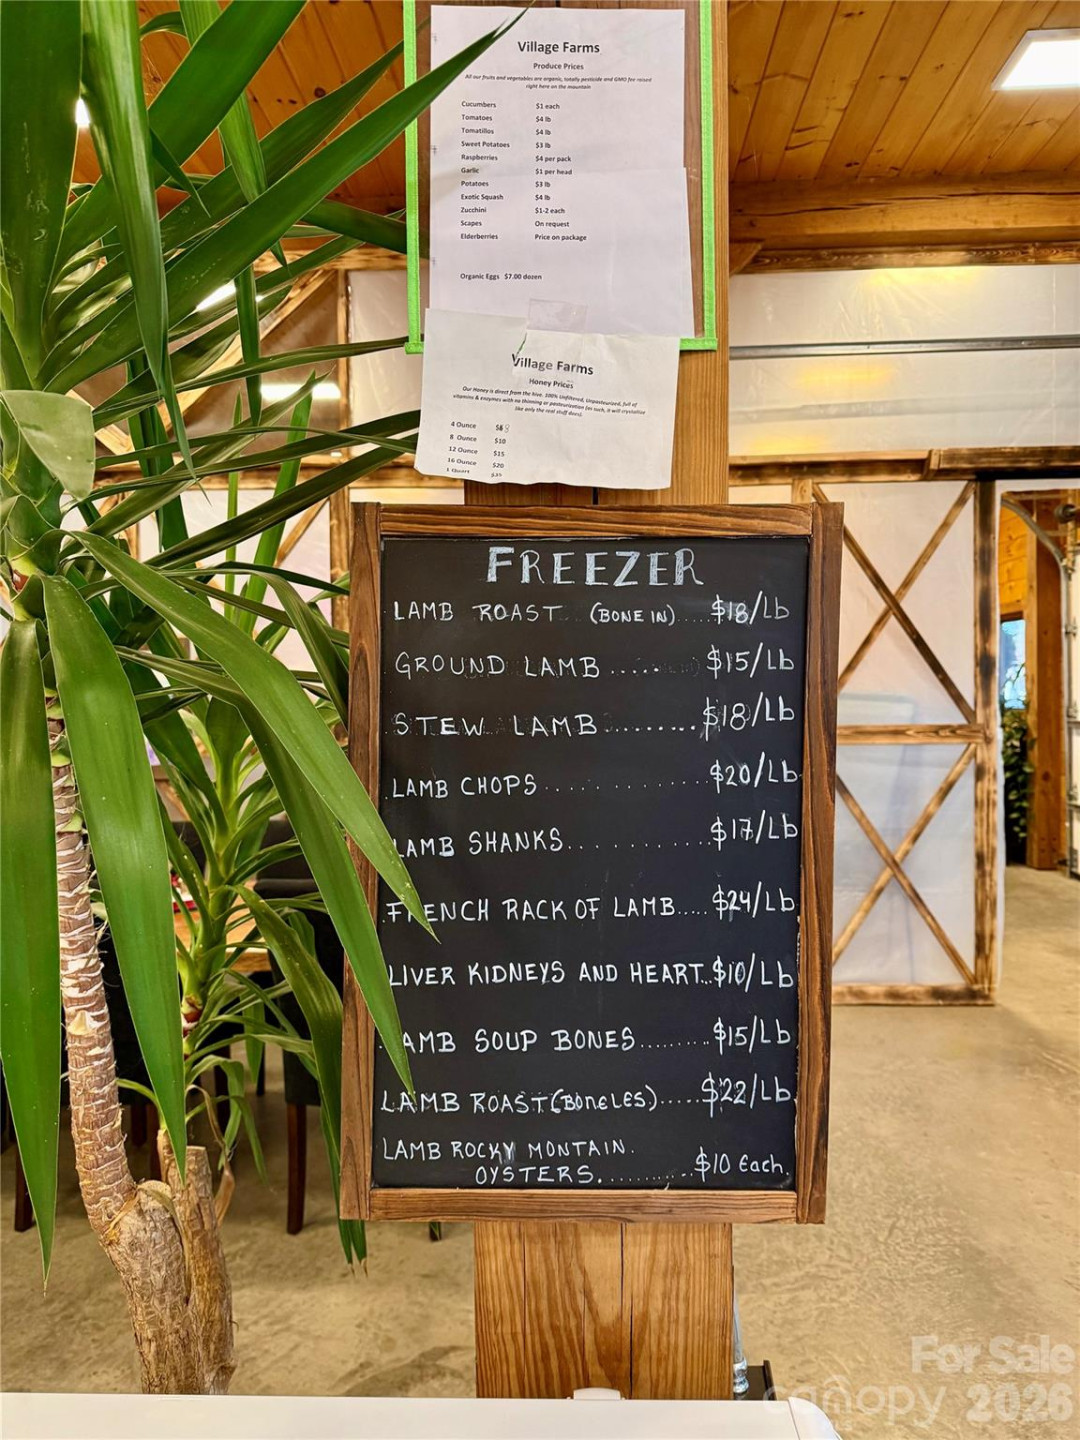 Village Farms
Produce Prices
All our fruits and vegetables are organic, totally pesticide and GMO fee raised
right here on the mountain
Cucumbers $1 each
Tomatoes $4 lb
Tomatillos $4 lb
Sweet Potatoes $3 lb
Raspberries $4 per pack
Garlic $1 per head
Potatoes $3 lb
Exotic Squash $4 lb
Zucchini $1-2 each
Scapes On request
Elderberries Price on package
Organic Eggs $7.00 dozen
Village Farms
Honey Prices
Our Honey is direct from the hive. 100% Unfiltered, Unpasteurized, full of
vitamins & enzymes with no thinning or pasteurization (as such, it will crystalize
like only the real stuff does).
4 Ounce
8 Ounce $10
12 Ounce $15
16 Ounce $20
1 Quart
FREEZER
LAMB ROAST (BONE IN).....$18/Lb
GROUND LAMB ..... $15/Lb
STEW LAMB........$18/Lb
LAMB CHOPS..........$20/Lb
LAMB SHANKS..........$17/Lb
FRENCH RACK OF LAMB.....$24/Lb
LIVER KIDNEYS AND HEART..$10/Lb
LAMB SOUP BONES.........$15/Lb
LAMB ROAST(BONELES).....$22/Lb
LAMB ROCKY MONTAIN.
OYSTERS...........$10 Each.
For Sale
canopy 2026